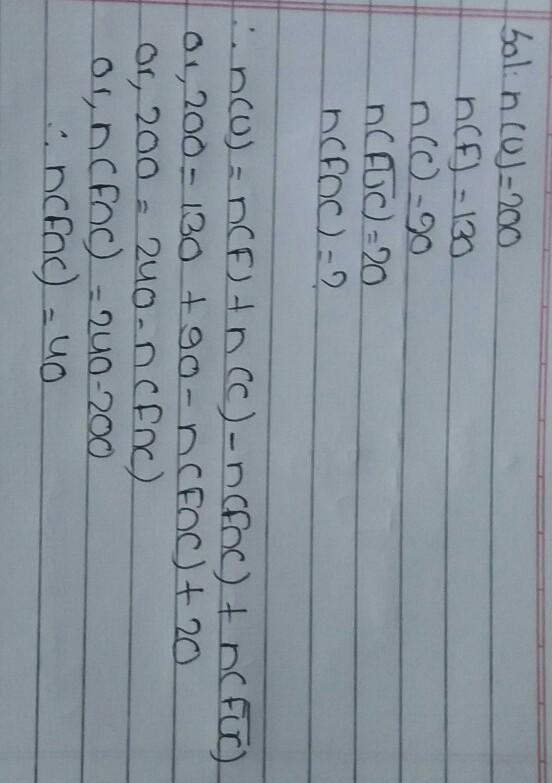 Sol: n(U)=200
n(F)=130
n(C)=90
n(F̅U̅C̅)=20
n(FnC)=?
∴ n(U)=n(F)+n(C)-n(FnC)+n(F̅U̅C̅)
or, 200=130+90-n(FnC)+20
or, 200=240-n(FnC)
or, n(FnC)=240-200
∴ n(FnC)=40